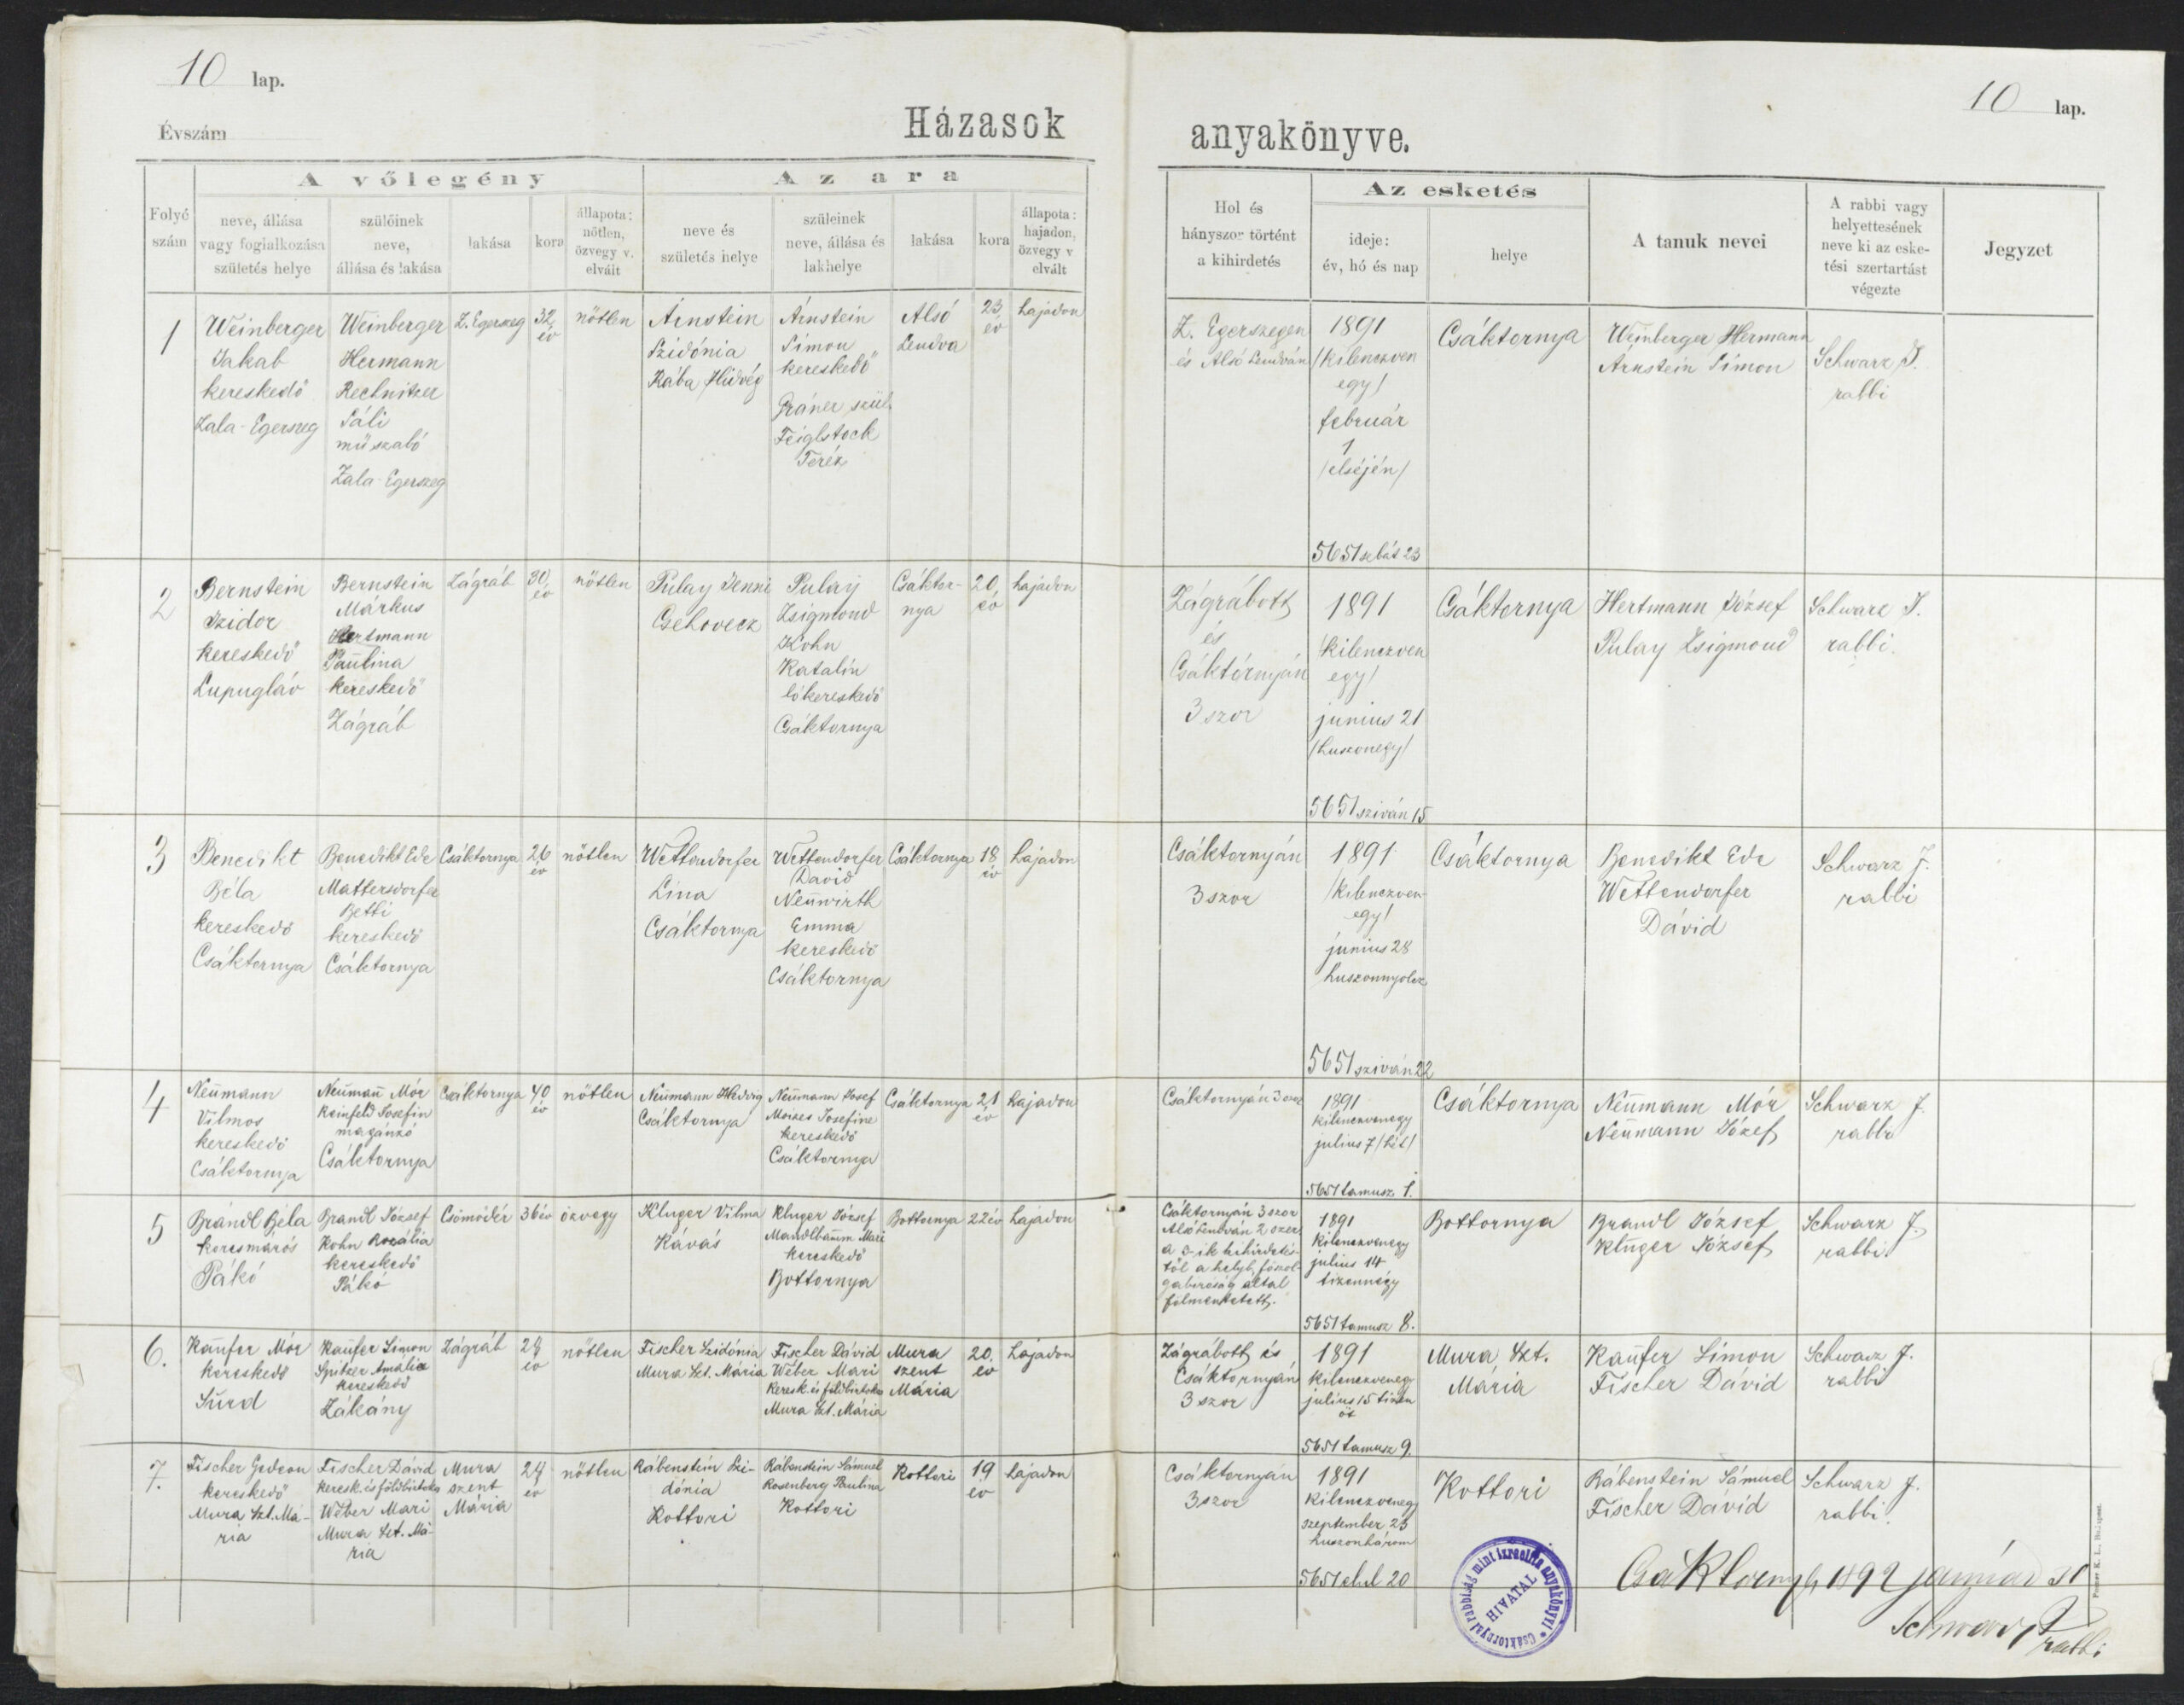 10 lap.
Évszám
Házasok
A vőlegény
Az ara
Folyó szám
neve, állása vagy foglalkozása születés helye
szülőinek neve, állása és lakása
lakása
kora
állapota: nőtlen, özvegy v. elvált
neve és születés helye
szüleinek neve, állása és lakhelye
lakása
kora
állapota: hajadon, özvegy v elvált
1
Weinberger
Jakab
kereskedő
Zala-Egerszeg
Weinberger
Hermann
Rechnitzer
Sáli
műszabó
Zala-Egerszeg
Z. Egerszeg
32 év
nőtlen
Arnstein
Szidónia
Rába Hidvég
Arnstein
Simon
kereskedő
Gráner szül.
Feiglstock
Teréz
Alsó
Lendva
23 év
hajadon
2
Bernstein
Izidor
kereskedő
Lupugláv
Bernstein
Márkus
Hertmann
Paulina
kereskedő
Zágráb
Zágráb
30 év
nőtlen
Pulay Jenni
Csehovecz
Pulay
Zsigmond
Kohn
Katalin
lókereskedő
Csáktornya
Csáktor-
nya
20 év
hajadon
3
Benedikt
Béla
kereskedő
Csáktornya
Benedikt Ede
Mattersdorfer
Betti
kereskedő
Csáktornya
Csáktornya
26 év
nőtlen
Wettendorfer
Lina
Csáktornya
Wettendorfer
David
Neuwirth
Emma
kereskedő
Csáktornya
Csáktornya
18 év
hajadon
4
Neumann
Vilmos
kereskedő
Csáktornya
Neumann Mór
Reinfeld Josefin
magánzó
Csáktornya
Csáktornya
40 év
nőtlen
Neumann Hedvig
Csáktornya
Neumann Josef
Moises Josefine
kereskedő
Csáktornya
Csáktornya
21 év
hajadon
5
Brandl Béla
korcsmáros
Páko
Brandl József
Kohn Rozália
kereskedő
Páko
Csömödér
36 év
özvegy
Kluger Vilma
Kávás
Kluger József
Mandlbaum Mari
kereskedő
Bottornya
Bottornya
22 év
hajadon
6.
Kaufer Mór
kereskedő
Surd
Kaufer Simon
Spitzer Amália
kereskedő
Zákány
Zágráb
nőtlen
Fischer Szidónia
Mura Szt. Mária
Fischer Dávid
Wéber Mari
keresk. és földbirtokos
Mura Szt. Mária
Mura
szent
Mária
20 év
hajadon
7.
Fischer Gedeon
kereskedő
Mura Szt. Má-
ria
Fischer Dávid
keresk. és földbirtokos
Wéber Mari
Mura Szt. Má-
ria
Mura
szent
Mária
nőtlen
Rábenstein Szi-
dónia
Kottori
Rábenstein Sámuel
Rosenberg Paulina
Kottori
Kottori
19 év
hajadon
10 lap.
anyakönyve.
Hol és hányszor történt a kihirdetés
Az esketés
ideje: év, hó és nap
helye
A tanuk nevei
A rabbi vagy helyettesének neve ki az esketési szertartást végezte
Jegyzet
Z. Egerszegen
és Alsó Lendván
1891
/kilenczven
egy/
február
1
/elsején/
5651 sebát 23
Csáktornya
Weinberger Hermann
Arnstein Simon
Schwarz J.
rabbi
Zágrábott
és
Csáktornyán
3 szor
1891
/kilenczven
egy/
junius 21
/huszonegy/
5651 sziván 15
Csáktornya
Hertmann József
Pulay Zsigmond
Schwarz J.
rabbi.
Csáktornyán
3 szor
1891
/kilenczven-
egy/
junius 28
huszonnyolcz
5651 sziván 22
Csáktornya
Benedikt Ede
Wettendorfer
Dávid
Schwarz J.
rabbi
Csáktornyán 3 szor
1891
kilenczvenegy
julius 7 /hét/
5651 tamusz 1.
Csáktornya
Neumann Mór
Neumann József
Schwarz J.
rabbi
Csáktornyán 3 szor
Alsó Lendván 2 szer
a 3-ik kihirdetés-
től a helyb. főszol-
gabiróság által
fölmentetett.
1891
kilenczvenegy
julius 14
tizennégy
5651 tamusz 8.
Bottornya
Brandl József
Kluger József
Schwarz J.
rabbi
Zágrábott és
Csáktornyán
3 szor
1891
kilenczvenegy
julius 15 tizen
öt
5651 tamusz 9.
Mura Szt.
Mária
Kaufer Simon
Fischer Dávid
Schwarz J.
rabbi
Csáktornyán
3 szor
1891
kilenczvenegy
szeptember 23
huszonhárom
5651 elul 20
Kottori
Rábenstein Sámuel
Fischer Dávid
Schwarz J.
rabbi.
Csáktornya 1892 január 31
Schwarz J
rabbi
Csáktornyai rabbiság mint izraelita anyakönyvi
HIVATAL